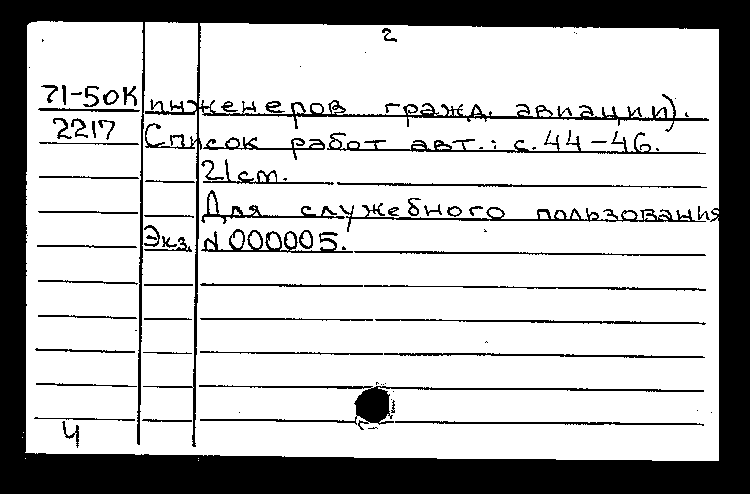 2
71-50К инженеров гражд. авиации).
2217 Список работ авт.: с. 44-46.
21 см.
Для служебного пользования
Экз. № 000005.
Ч